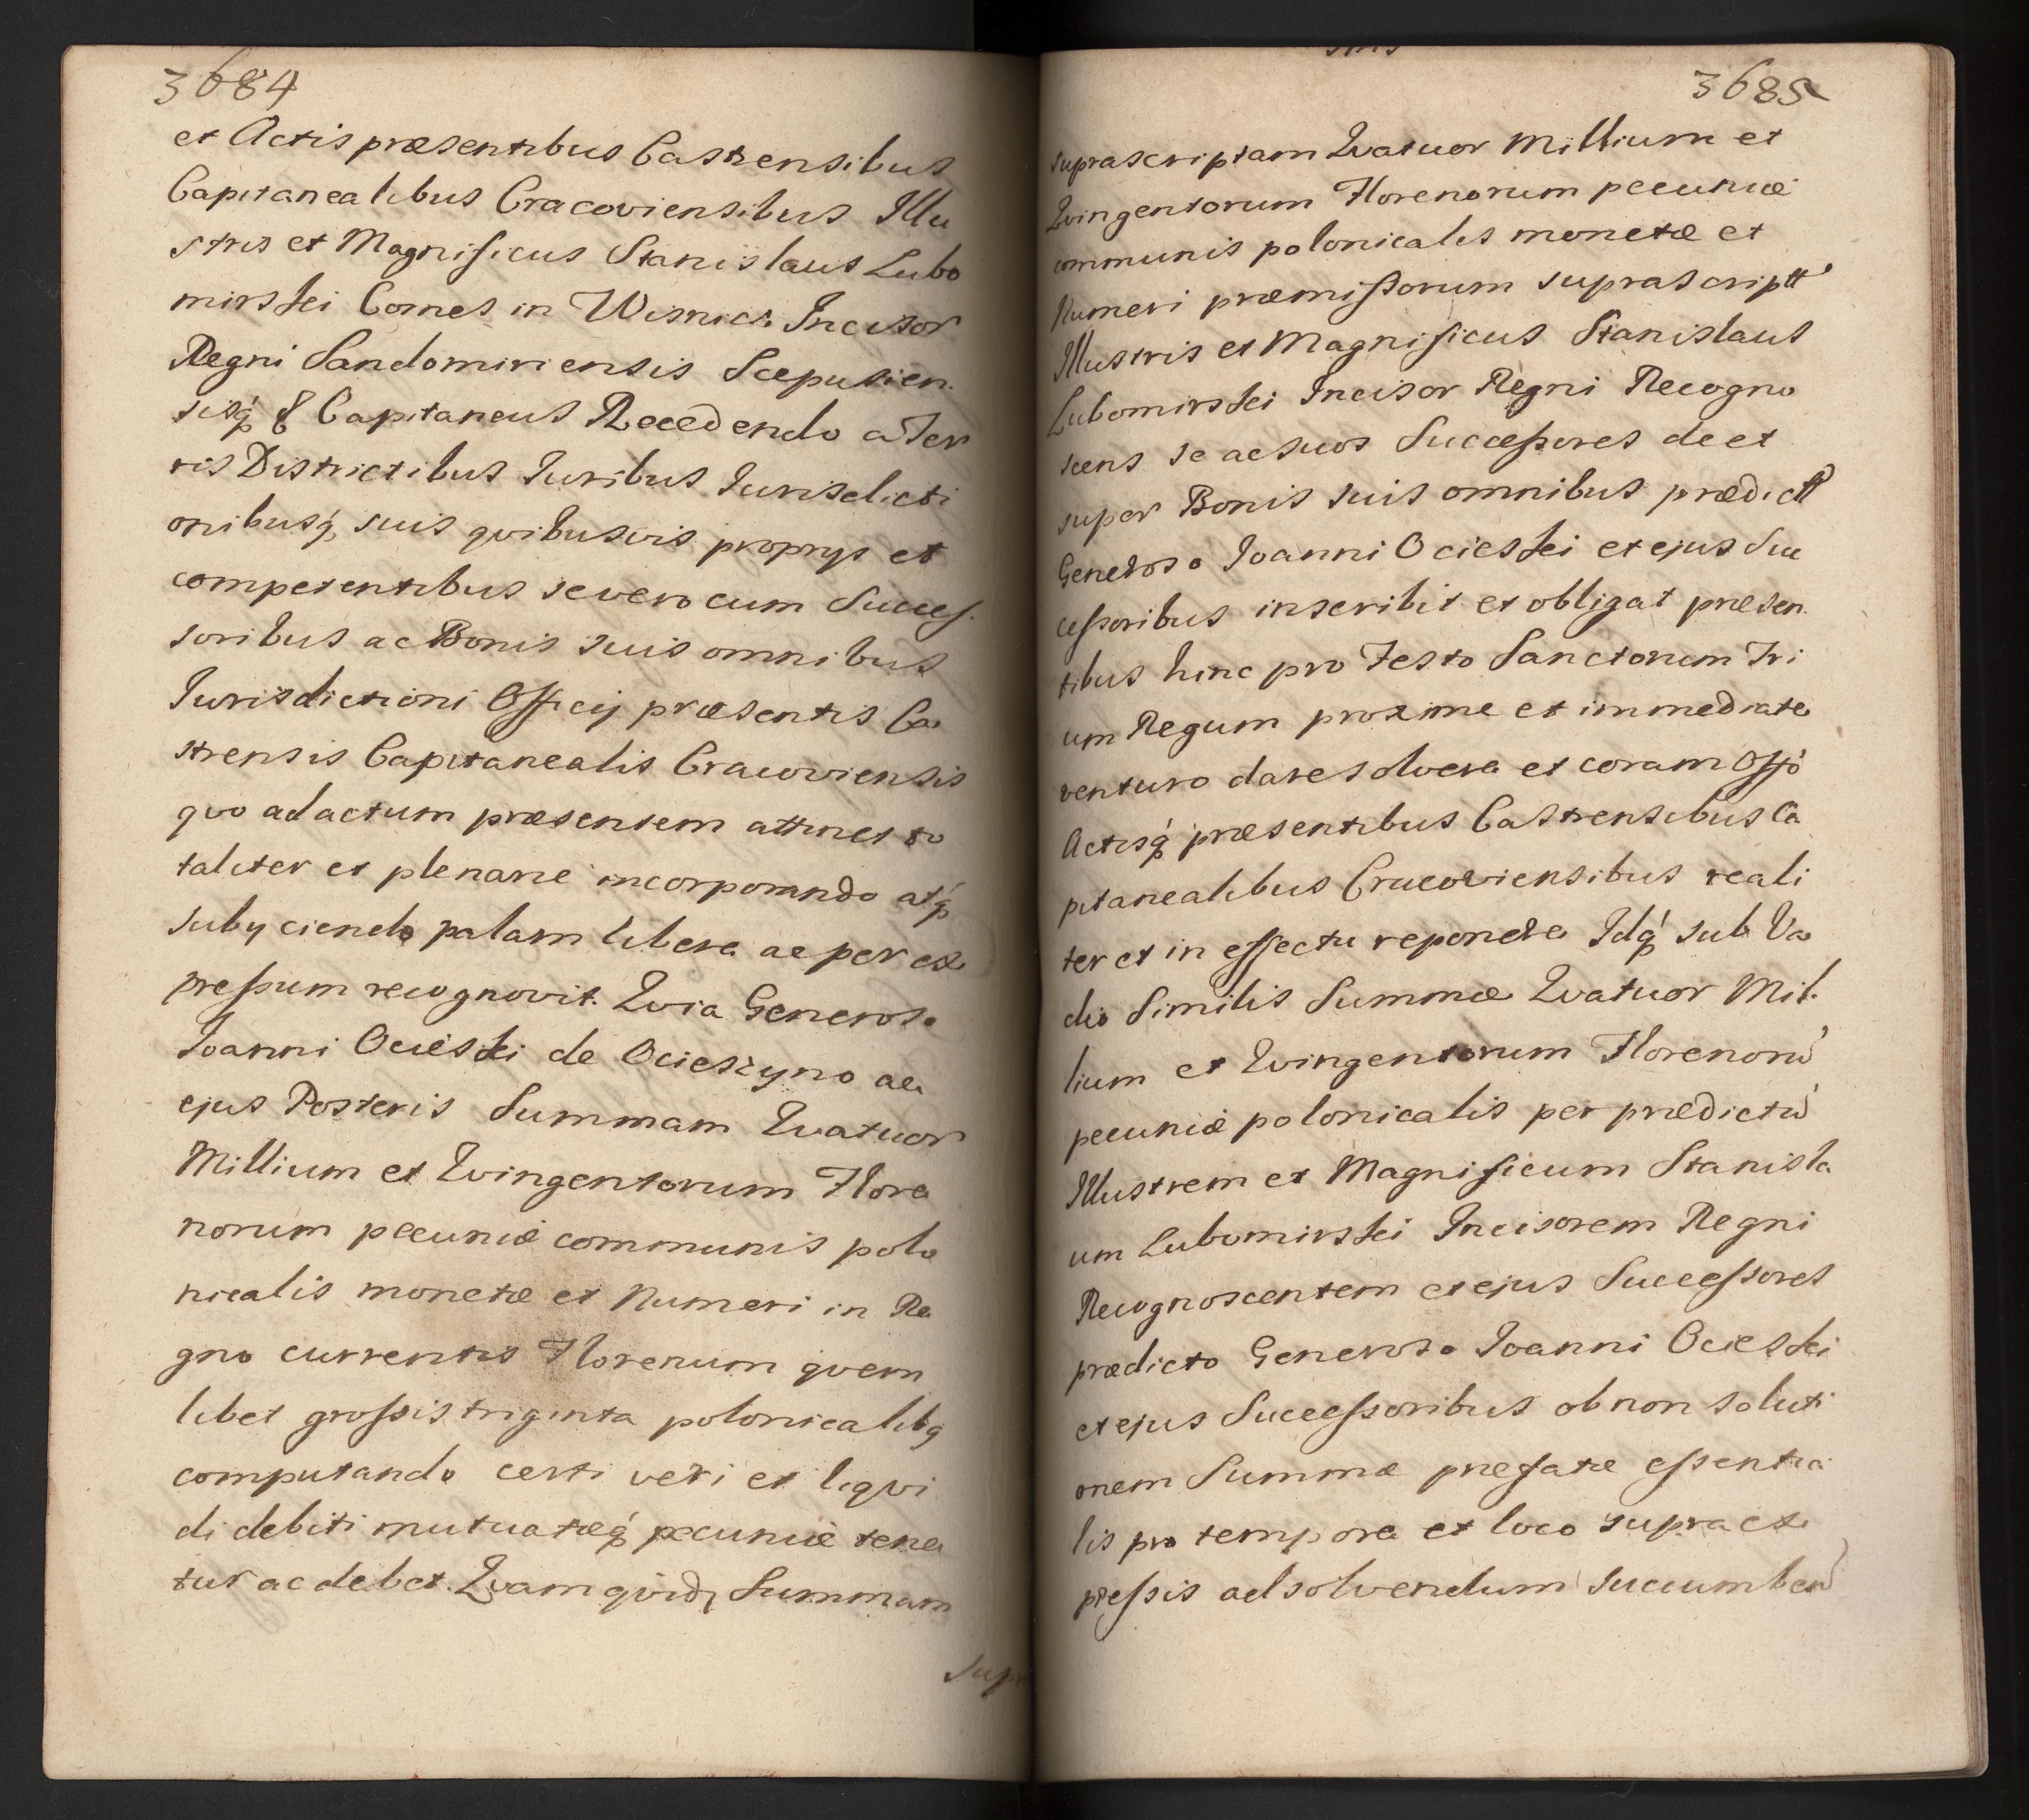 3684
et Actis præsentibus Castrensibus
Capitanealibus Cracoviensibus Illu
stris et Magnificus Stanislaus Lubo
mirski Comes in Wisnicz Incisor
Regni Sandomiriensis Scepusien.
sisq́ & Capitaneus Recedendo a Ter
ris Districtibus Juribus Jurisdicti
onibusq́ suis qvibusvis proprys et
competentibus se vero cum Succes.
soribus ac Bonis suis omnibus
Jurisdictioni Officij præsentis Ca
strensis Capitanealis Cracoviensis
qvo ad actum præsentem attinet to
taliter et plenarie incorporando atq́
subyciendo palam libere ac per ex
pressum recognovit. Qvia Generoso
Joanni Ocieski de Ocieszyno ac
ejus Posteris Summam Qvatuor
Millium et Qvingentorum Flore
norum pecuniæ communis polo
nicalis monetæ et Numeri in Re
gno currentis Florenum qvem
libet grossis triginta polonicalibq
computando certi veri et liqvi
di debiti mutuatæq́ pecuniæ tene
tur ac debet. Qvam qvidq Summam
sup
3685
suprascriptam Qvatuor Millium et
Qvingentorum Florenorum pecuniæ
communis polonicalis monetæ et
Numeri præmissorum suprascriptt
Illustris et Magnificus Stanislaus
Lubomirski Incisor Regni Recogno
scens se ac suos Successores de et
super Bonis suis omnibus prædictt
Generoso Joanni Ocieski et ejus Suc
cessoribus inscribit et obligat præsen
tibus hinc pro Festo Sanctorum Tri
um Regum proxime et immediate
venturo dare solvere et coram Offo
Actisq́ præsentibus Castrensibus Ca
pitanealibus Cracoviensibus reali
ter et in effectu reponere Idq́ sub Va
dio Similis Summæ Qvatuor Mil.
lium et Qvingentorum Florenorū
pecuniæ polonicalis per prædictū
Illustrem et Magnificum Stanisla
um Lubomirski Incisorem Regni
Recognoscentem et ejus Successores
prædicto Generoso Joanni Ocieski
et ejus Successoribus ob non soluti
onem Summæ præfatæ essentia
lis pro tempore et loco supra ex
pressis ad solvendum succumbend